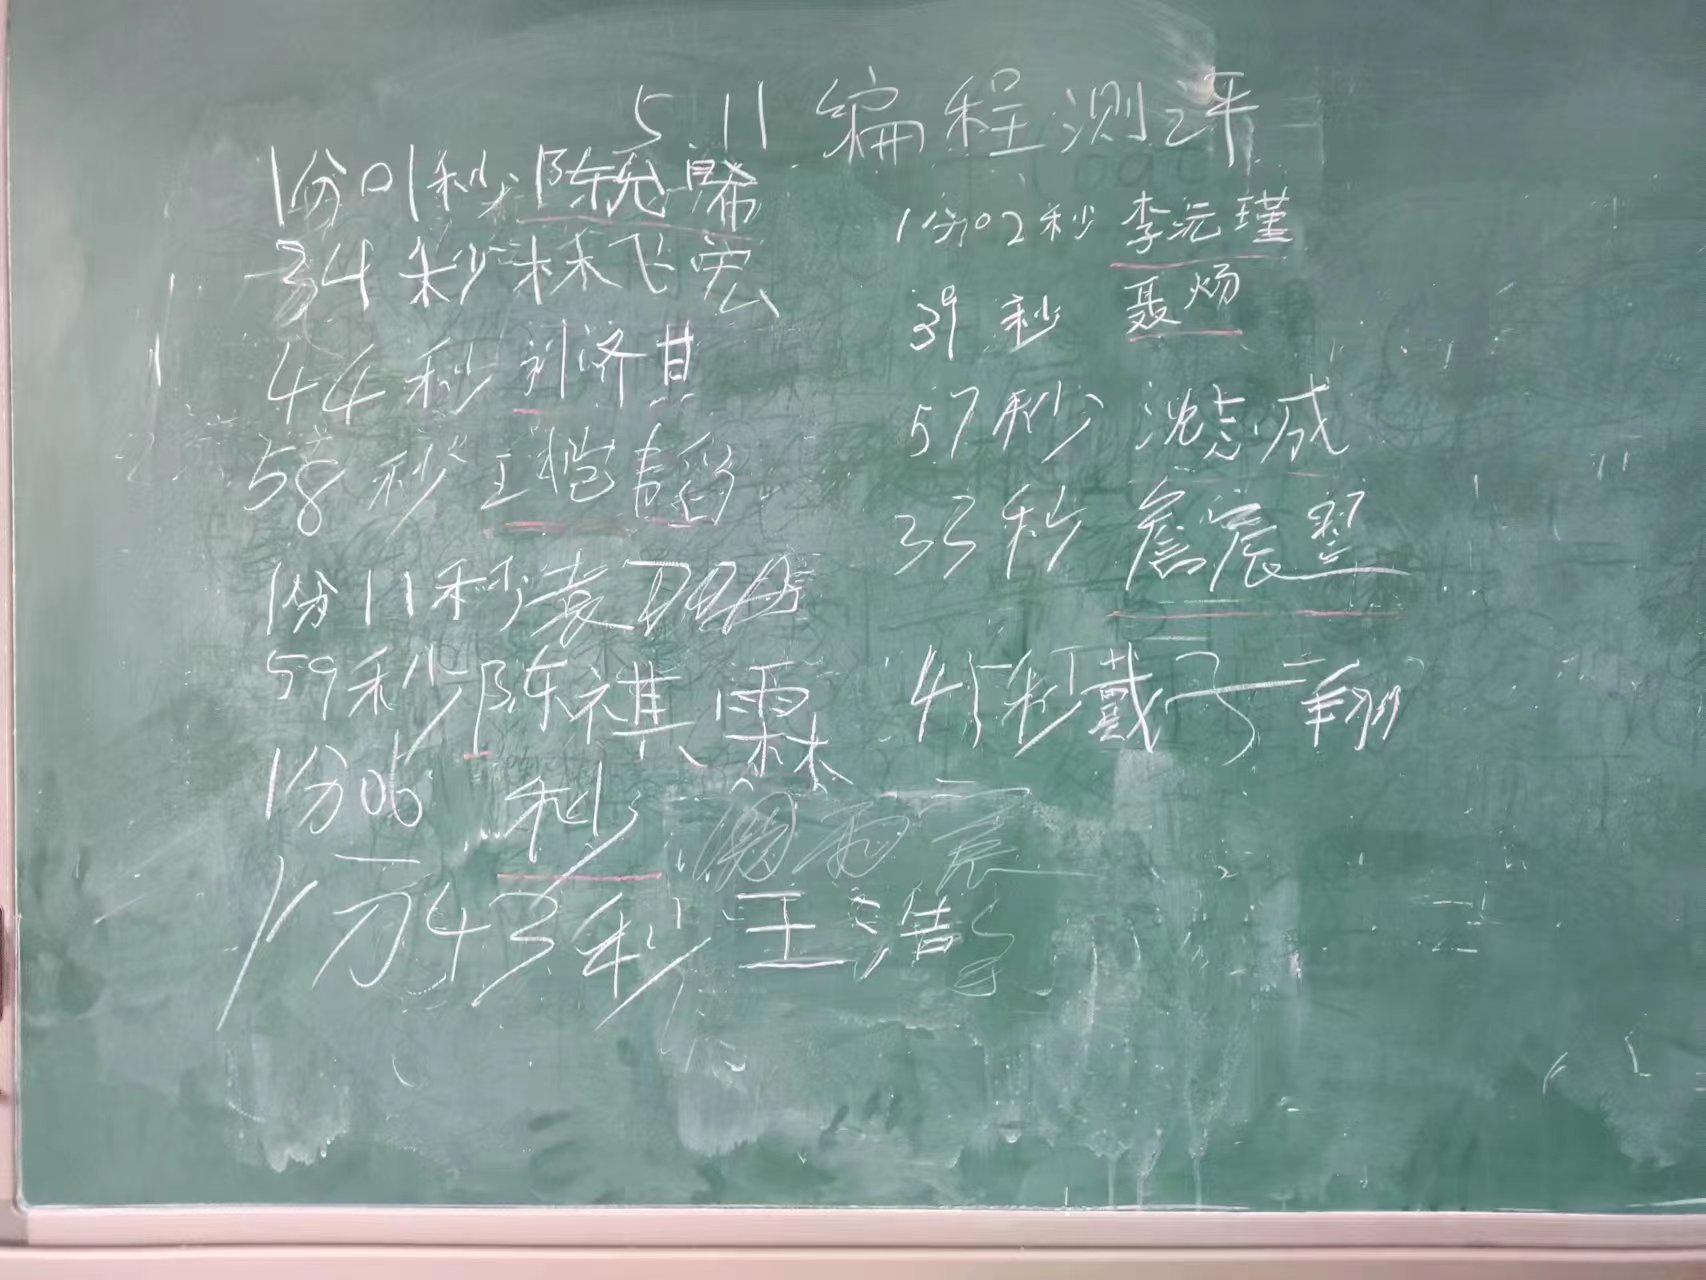 5.11编程测评
1分01秒 陈允晞
34秒 林飞宏
44秒 刘济甘
58秒 王恺韬
1分11秒 袁
59秒 陈祺霖
1分06秒
1分43秒 王浩
1分02秒 李沅瑾
39秒 聂炀
57秒 沈志成
33秒 詹宸
45秒 戴子翔